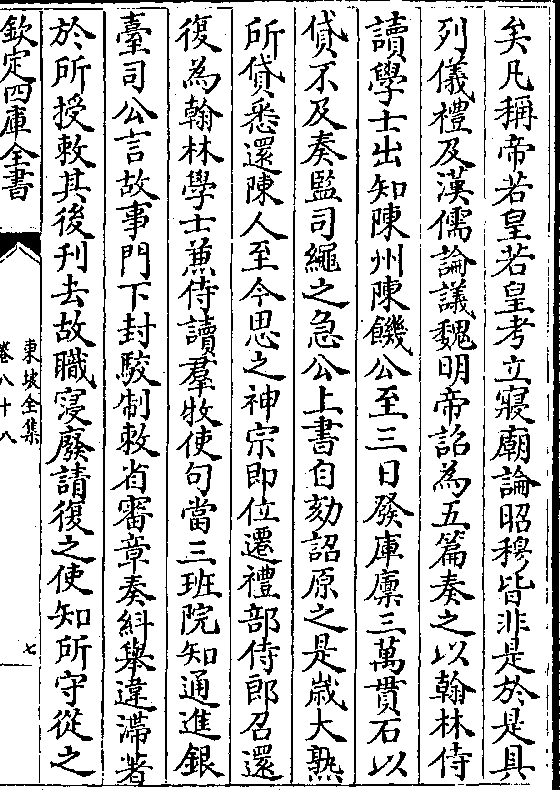 矣凡稱帝若皇若皇考立寢廟論昭穆皆非是於是具
列儀禮及漢儒論議魏明帝詔為五篇奏之以翰林侍
讀學士出知陳州陳饑公至三日發庫廩三萬貫石以
貸不及奏監司繩之急公上書自劾詔原之是歲大熟
所貸悉還陳人至今思之神宗即位遷禮部侍郎召還
復為翰林學士兼侍讀羣牧使句當三班院知通進銀
臺司公言故事門下封駮制敕省審章奏糾舉違滯著
於所授敕其後刋去故職寖廢請復之使知所守從之
欽定四庫全書
東坡全集
卷八十八
七